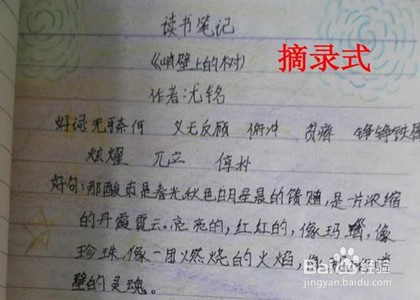 读书笔记
《峭壁上的树》 摘录式
作者:尤铭
好词 无可奈何 义无反顾 俯冲 贫瘠 铮铮铁骨
炫耀 兀立 倚扑
好句:那酸枣是春光秋色日月星晨的馈赠,是一片浓缩
的丹霞霞云。亮亮的,红红的,像玛瑙,像
珍珠,像一团燃烧的火焰,像
的灵魂。
Baidu 经验
jingyan.baidu.com